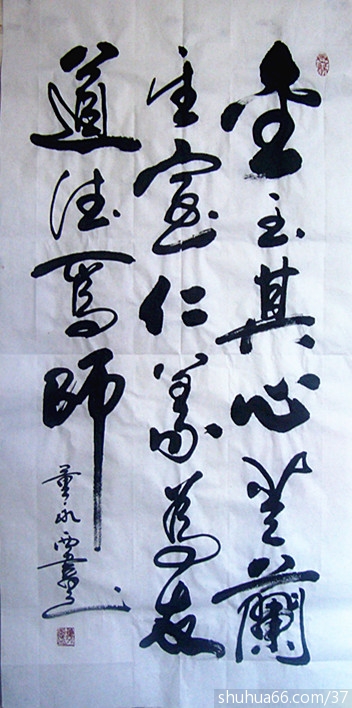 金玉其心芝蘭
其室仁義為友
道德為師
董永
shuhua66.com/37